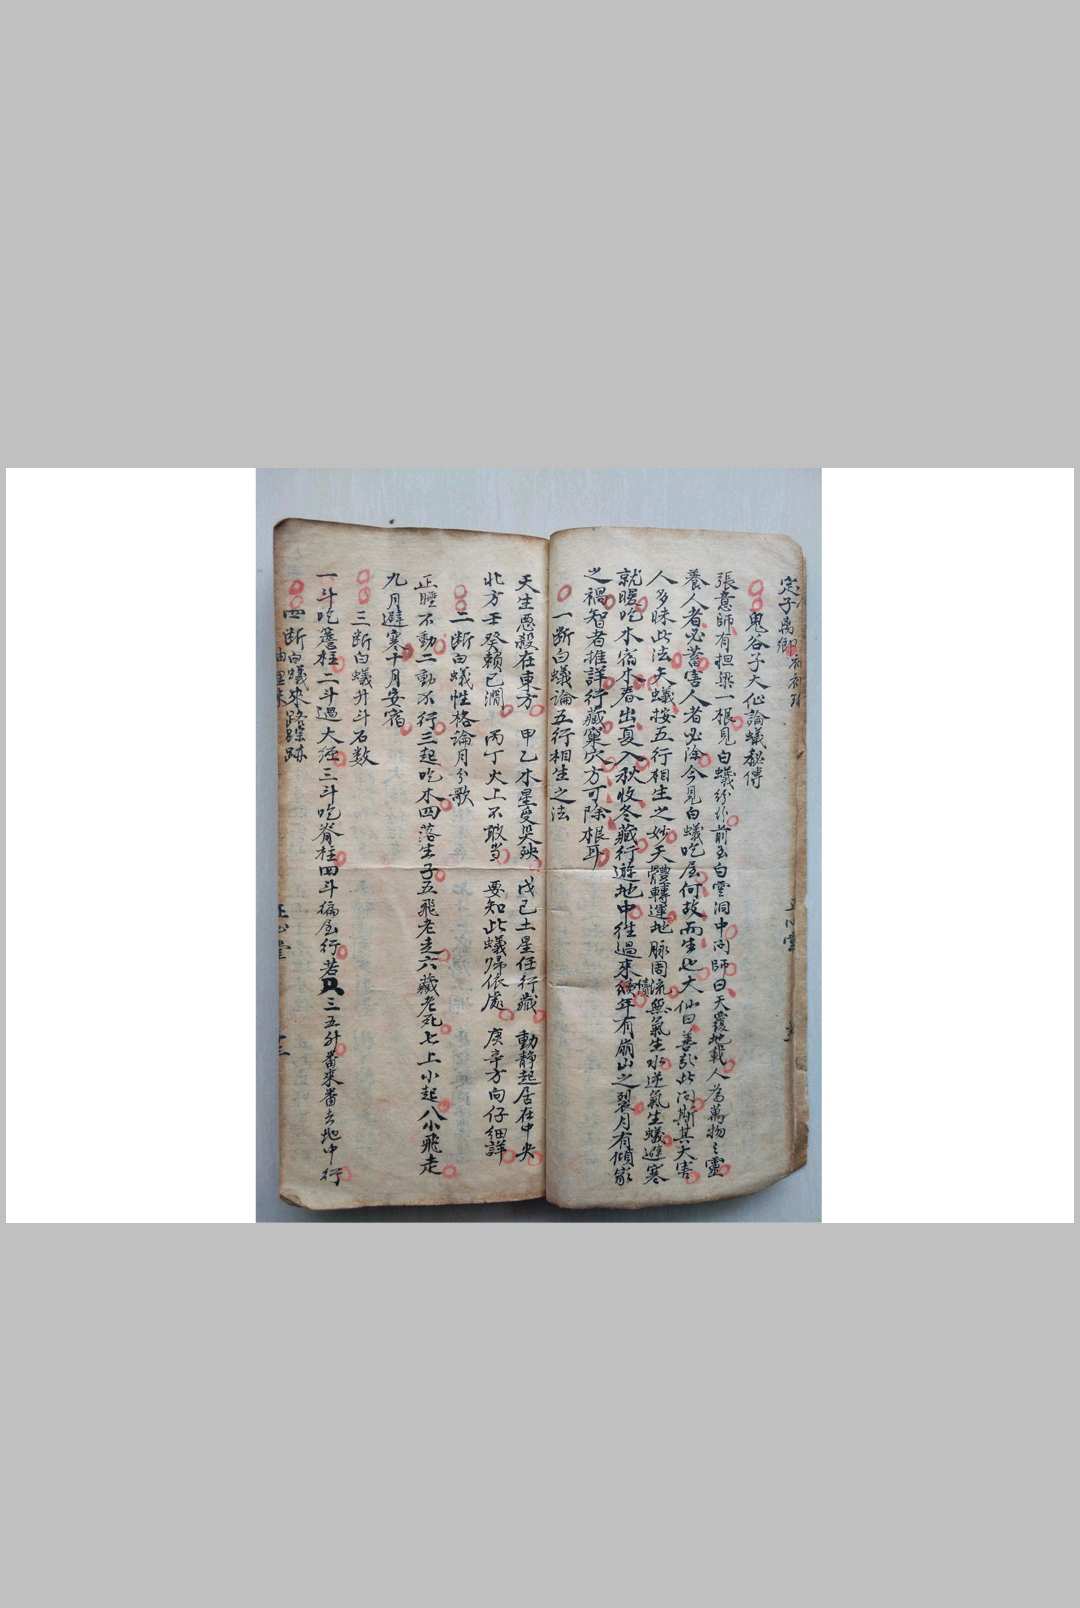 鬼谷子大仙論蟻秘傳
張意師有担梁一根見白蟻紛紛前至白雲洞中問師曰天覆地載人為萬物之靈
養人者必蓄害人者必除今見白蟻吃屋何故而生也大仙曰善哉此問斯其大害
人多昧此法夫蟻按五行相生之妙天體轉運地脉周流無氣生水逆氣生蟻避寒
就暖吃木宿木春出夏入秋收冬藏行遊地中往過來續年有崩山之裂月有傾家
之禍智者推詳行藏窠穴方可除根耳
一斷白蟻論五行相生之法
天生惡殺在東方 甲乙木星受災殃 戊己土星任行藏 動靜起居在中央
北方壬癸賴已潤 丙丁火上不敢当 要知此蟻歸依處 庚辛方向仔細詳
二断白蟻性格論月分歌
正睡不動二動不行三起吃木四落生子五飛老走六藏老死七上小起八小飛走
九月避寒十月安宿
三断白蟻升斗石数
一斗吃簷柱二斗過大 三斗吃脊柱四斗 屋行若只三五升番來番去地中行
四断白蟻來路踪跡
正心堂